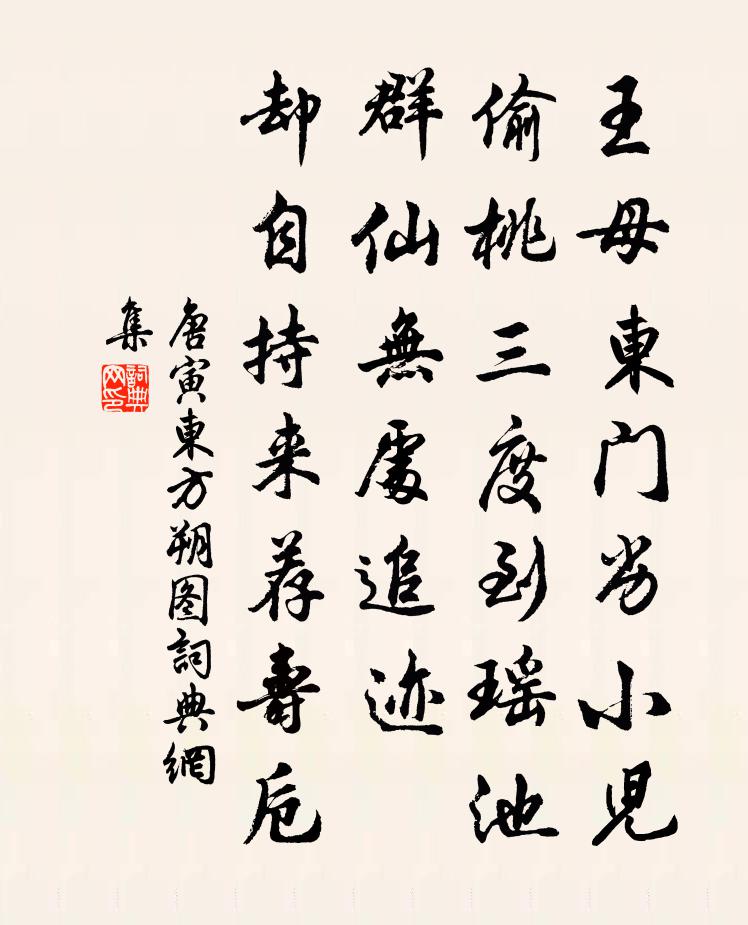 王母東门劣小兒
偷桃三度到瑶池
群仙無處追迹
却自持来荐壽卮
唐寅東方朔图詞典網
集
詞典
网印